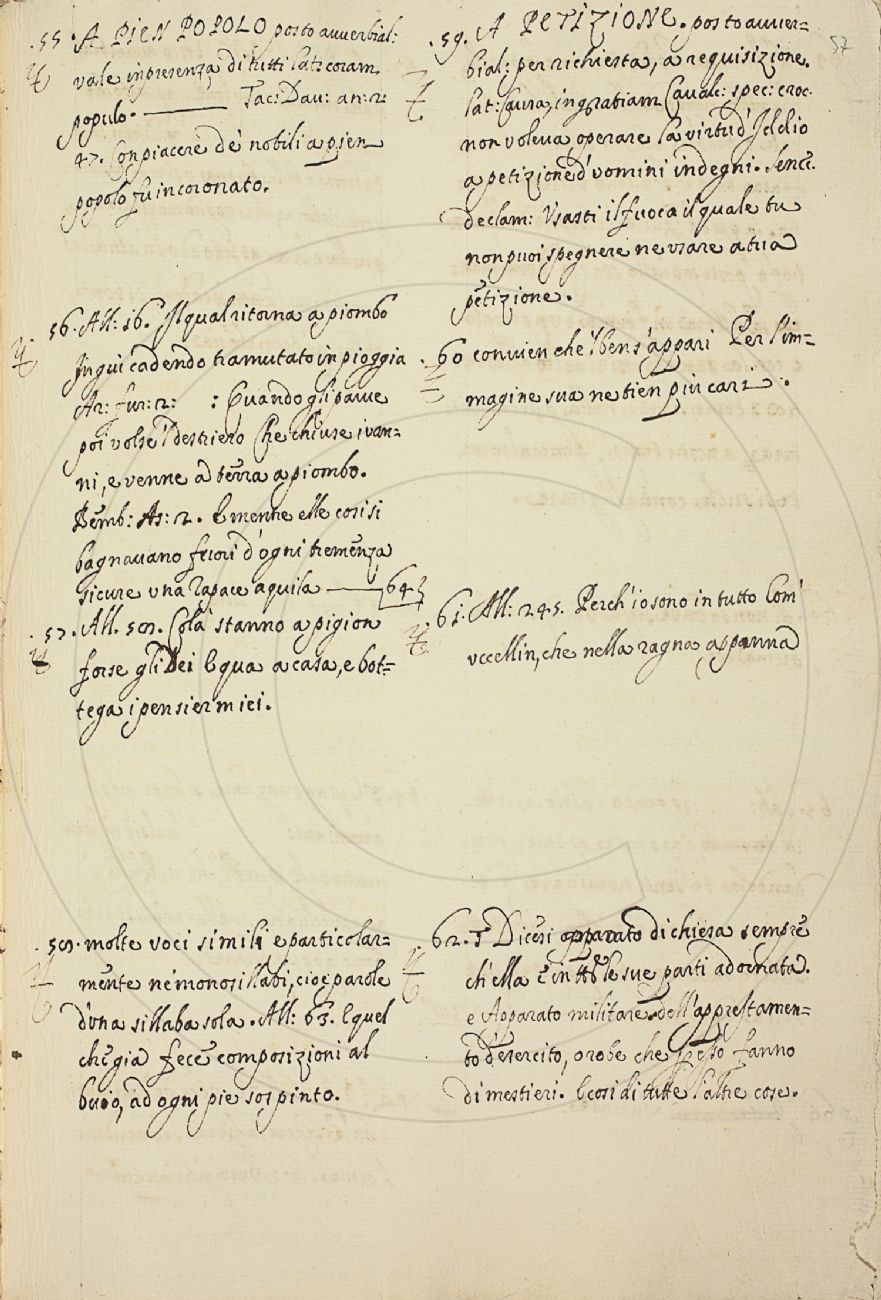 .55. A PIEN POPOLO posto avverbial:
vale inpresenza di tutti lat: coram
populo. Tac: Dau: an: 2:
47. Con piacere de' nobili a pien
popolo fu incoronato.
56. All: 16. Il qual ritorna a piombo
In giù cadendo tramutato in pioggia
Ar: fur: 2: : Quando gli parue
poi volse il destriero Che chiuse i van=
ni, e venne a terra a piombo.
Bemb: As: 2. E mentre elle così si
bagnauano fuori d'ogni temenza
sicure vna rapace aquila 64
.57. All. 50. Colà stanno a pigion
forse gli Dei E qua a casa, e bot=
tega i pensier miei.
.58. molte voci simili e particolar=
mente ne' monosillabi, cioè parole
d'vna sillaba sola. All: 63. E quel
che già fece composizioni al
buio, ad ogni pie sospinto.
57
.59. A PETIZIONE. posto avver=
bial: per richiesta, a requisizione.
lat: caura, in gratiam Caualc: spec: croc:
non voleua operare la virtù d'Iddio
a petizione d'vomini indegni. Senec:
declam: Vsasti il fuoco il quale tu
non puoi spegnere ne vsare a tua
petizione.
.60 convien che 'l ben s'appari Per l'im=
magine sua ne tien più cari.
.61. All: 245. Perch' io sono in tutto Com'
vccellin, che nella ragna appanna
.62. Dicesi apparato di chiesa sempre
ch'ella è in tte le sue parti adornata.
e Apparato militare dell'apprestamen=
to d'esercito, o robe che ad esso fanno
di mestieri. E così di tutte l'altre cose.